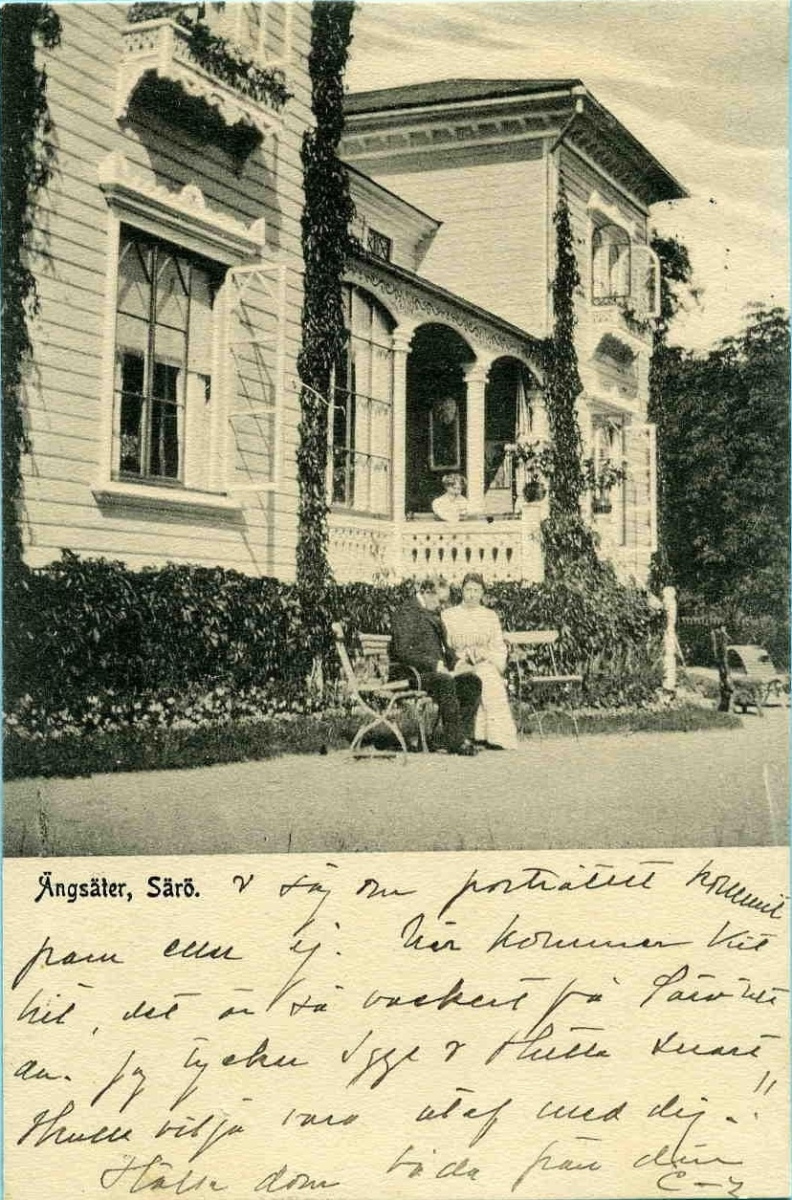 Ängsäter, Särö. & säg om porträttet kommit
fram eller ej. När kommer Kit
hit, det är så vackert på Särö
du. Jag tycker & snart
skulle vilja vara utaf med dig. !!
Hälsa dom båda från din
C